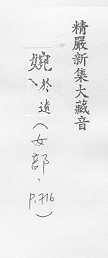 精嚴新集大藏音
婉於遠(女部.
P.716)